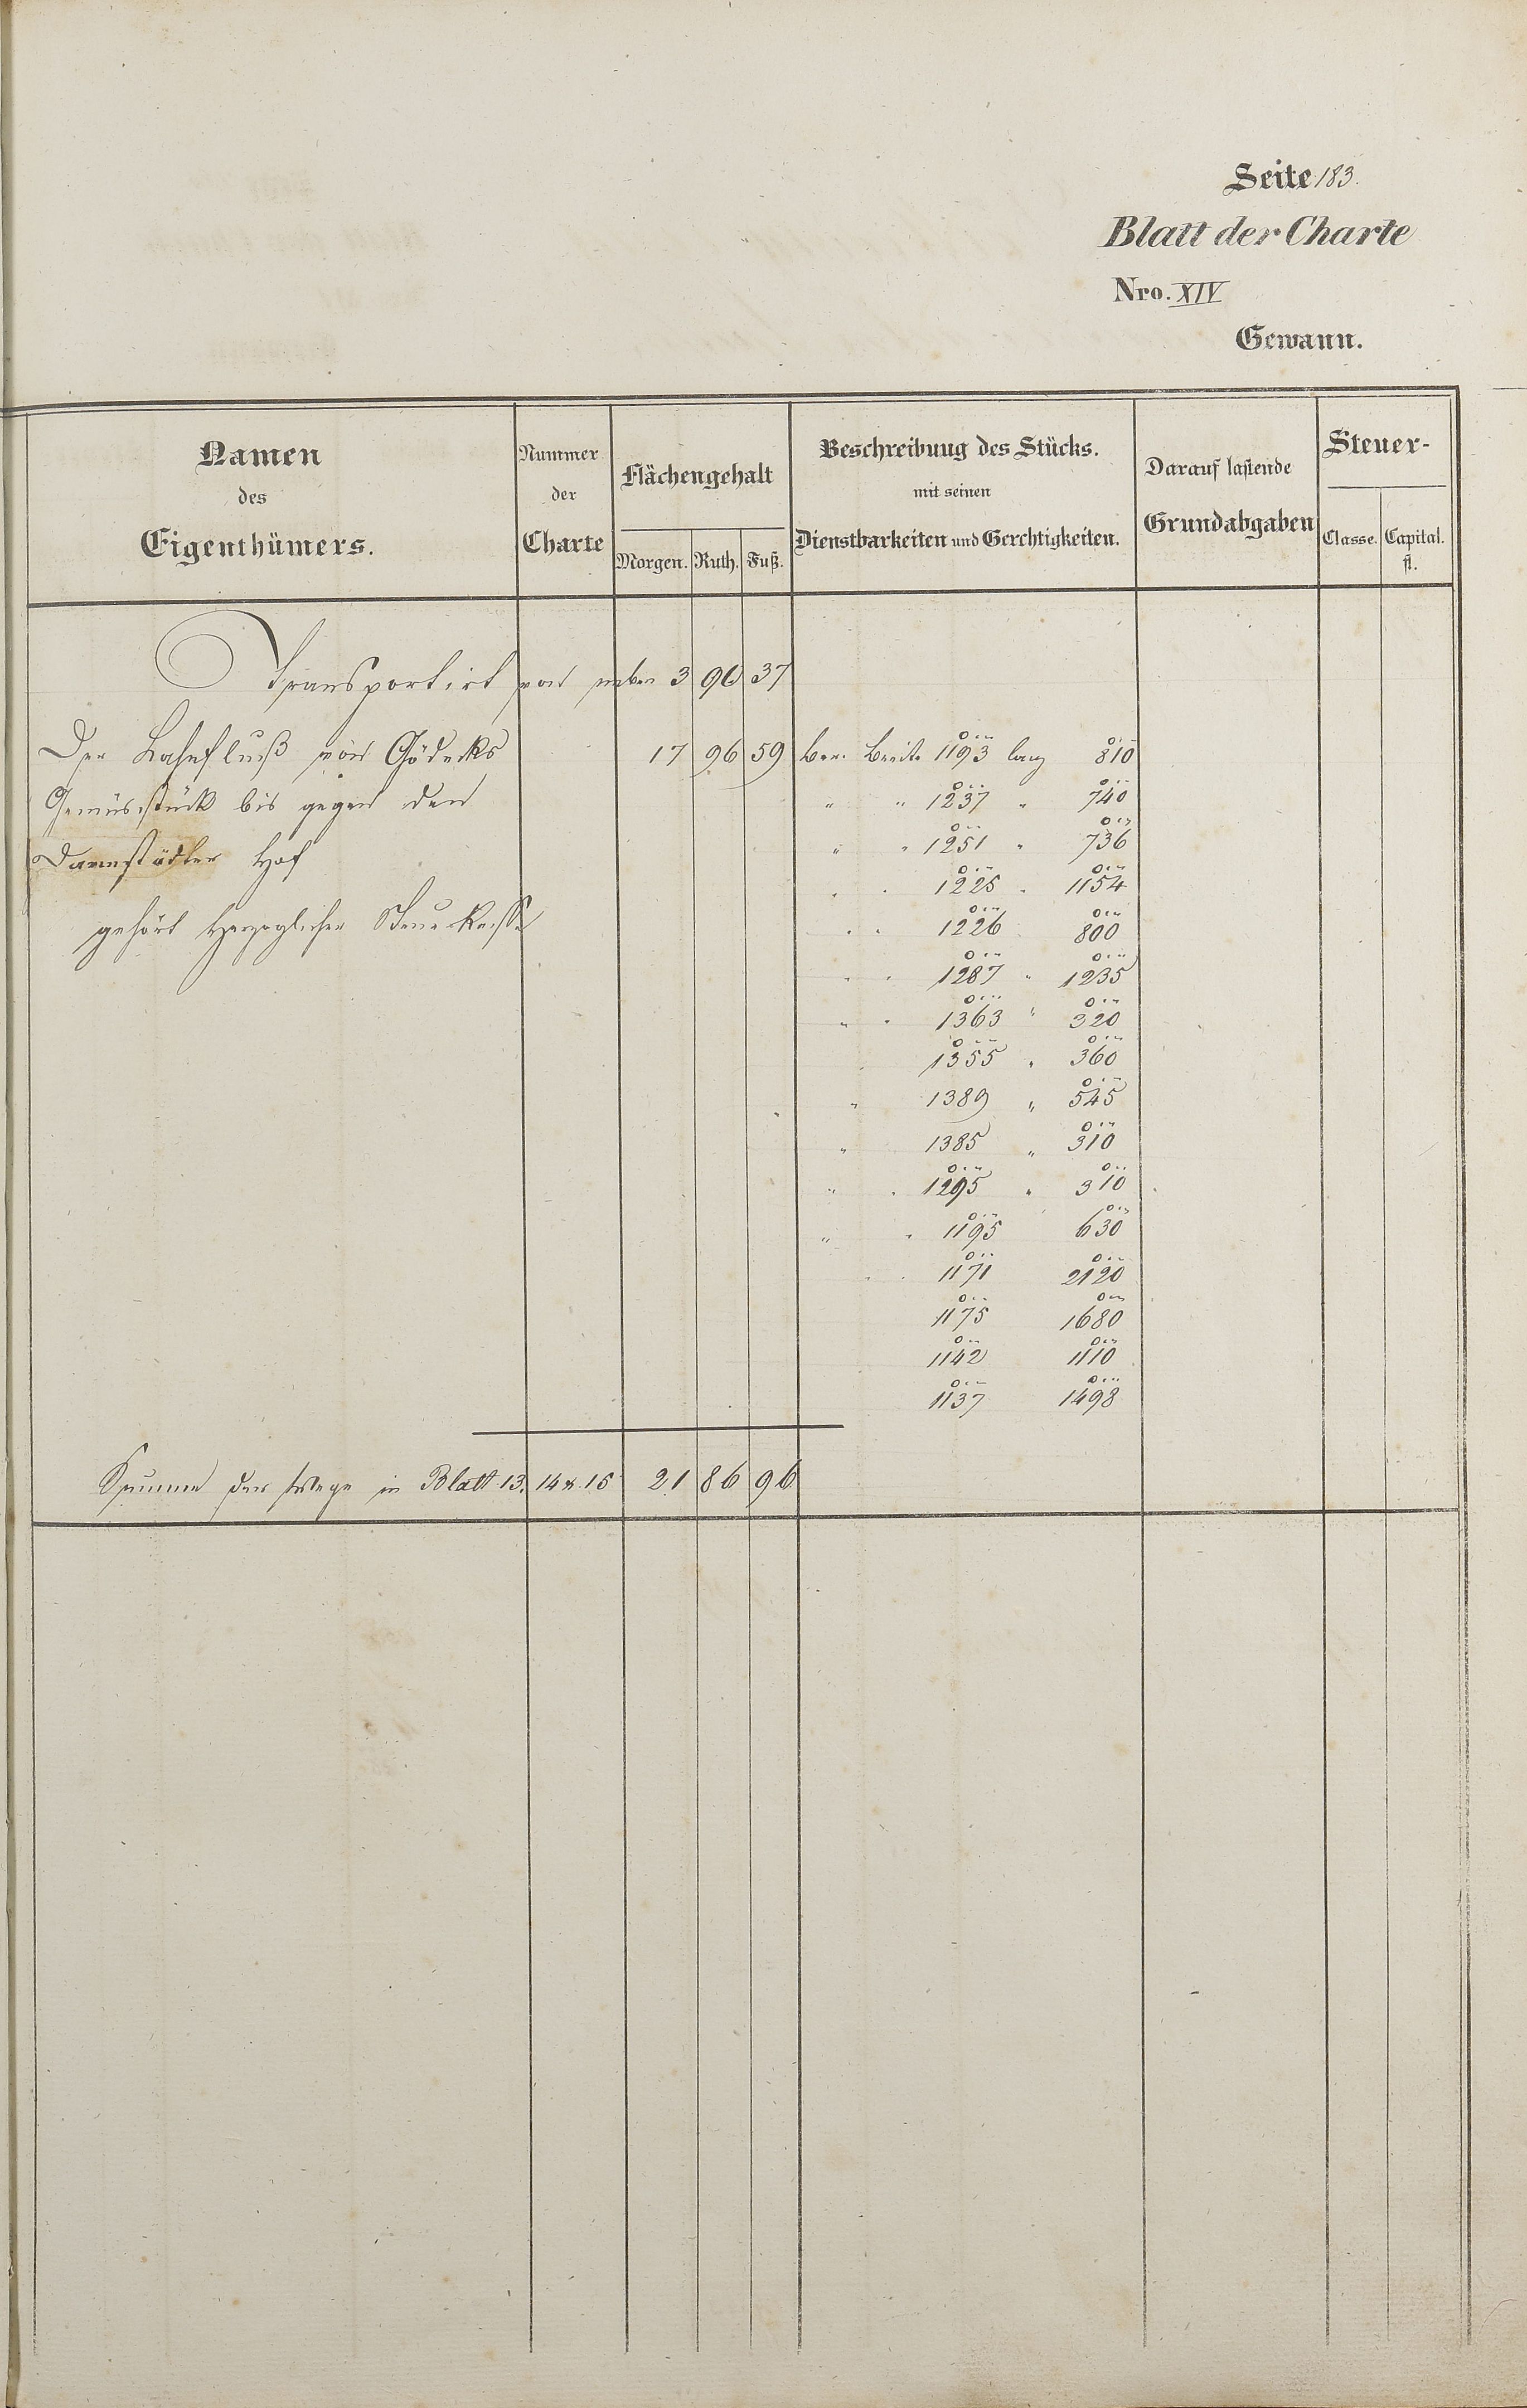 Seite 183.
Blatt der Charte
Nro. XIV
Gewann.
Namen des Eigenthümers.
Nummer der Charte
Flächengehalt
Morgen. Ruth. Fuß.
Beschreibung des Stücks.
mit seinen
Dienstbarkeiten und Gerechtigkeiten.
Darauf lastende
Grundabgaben
Steuer-
Classe. Capital. fl.
Transportirt von neben 3 90 37
Der Lahnfluß von Gödecks 17 96 59 ber. Breite 1193 lang 810
Gemüsstück bis gegen den " " 1237 " 740
Darmstädter Hof " " 1251 " 736
" " 1225 " 1154
gehört Herzoglicher Steuerkasse " " 1226 800
" " 1287 " 1235
" " 1363 " 320
1355 " 360
" 1389 " 545
" 1385 " 310
" " 1295 " 310
" " 1195 630
" " 1171 2120
1175 1680
1142 1110
1137 1498
Summe der Wege in Blatt 13. 14 & 15 21 86 96